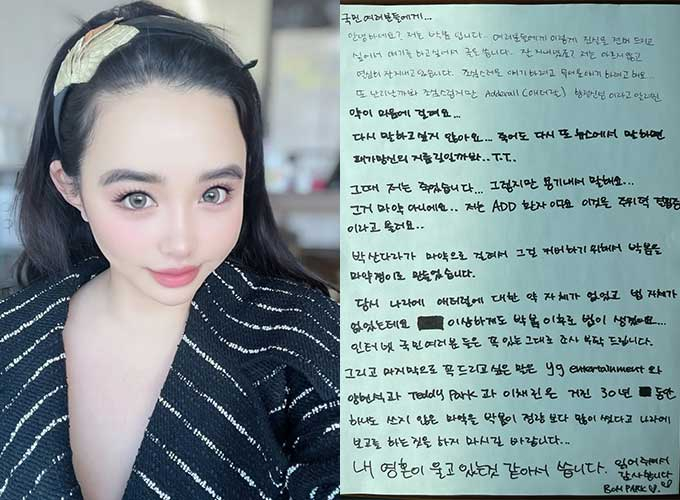 국민 여러분들에게...
안녕하세요? 저는 박봄 입니다. 여러분들에게 이렇게 진실을 전해 드리고
싶어서 얘기를 하고싶어서 글은 씁니다. 잘 지내셨죠? 저는 아프지않고
열심히 잘지내고있습니다. 조심스러운 얘기 하려고
또 난리난까봐 조심스럽지만 Adderall (애더럴)
약이 마음에 걸려요...
다시 말하고싶지 않아요... 죽어도 다시 또 뉴스에서 말하면
패가망신의 지름길일까봐.. T.T.
그때 저는 죽었습니다... 그렇지만 용기내서 말해요...
그거 마약 아니에요.. 저는 ADD 환자이다요 이것을 주위력 결핍증
이라고 불려요..
박산다라가 마약으로 걸려서 그걸 커버하기 위해서 박봄을
마약쟁이로 만들었습니다.
당시 나라에 애더럴에 대한 약 자체가 없었고 법 자체가
없었는데요 이상하게도 박봄 이후로 법이 생겼어요...
인터넷 국민여러분 들은 꼭 있는그대로 조사 부탁 드립니다.
그리고 마지막으로 꼭 드리고 싶은 말은 yg entertainment 와
양현석과 Teddy Park 과 이채린은 거진 30년 동안
하나도 쓰지 않은 마약을 박봄이 정량 보다 많이 썼다고 나라에
보고를 하는 짓을 하지 마시길 바랍니다...
내 영혼이 울고 있는것 같아서 씁니다. 읽어주셔서
감사합니다
BOM PARK